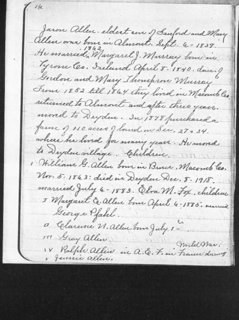 Jason Allen. eldest son of Sanford and Mary
Allen was born in Almont Sept. 6-1837.
1862
He married Margaret J. Murray born in
Tyrone Co. Ireland April 8. 1840. daur of
and Mary Thompson Murray.
From 1852 till 1864 they lived in Macomb Co.
returned to Almont and after three years
moved to Dryden. In 1875 purchased a
farm of 115 acres of land in Sec. 27 & 34.
where he lived for many years. He moved
to Dryden village. Children.
William G. Allen born in Bruce, Macomb Co.
Nov. 5. 1863. died in Dryden Dec. 5. 1915.
married July 4-1883. Elva M. Fox. children
Margaret E. Allen born April 6-1885. married
George Pfahl.
Clarence U. Allen born July 1
Guy Allen.
World War.
Ralph Allen in A.E.F. in France
Jennie Allen.